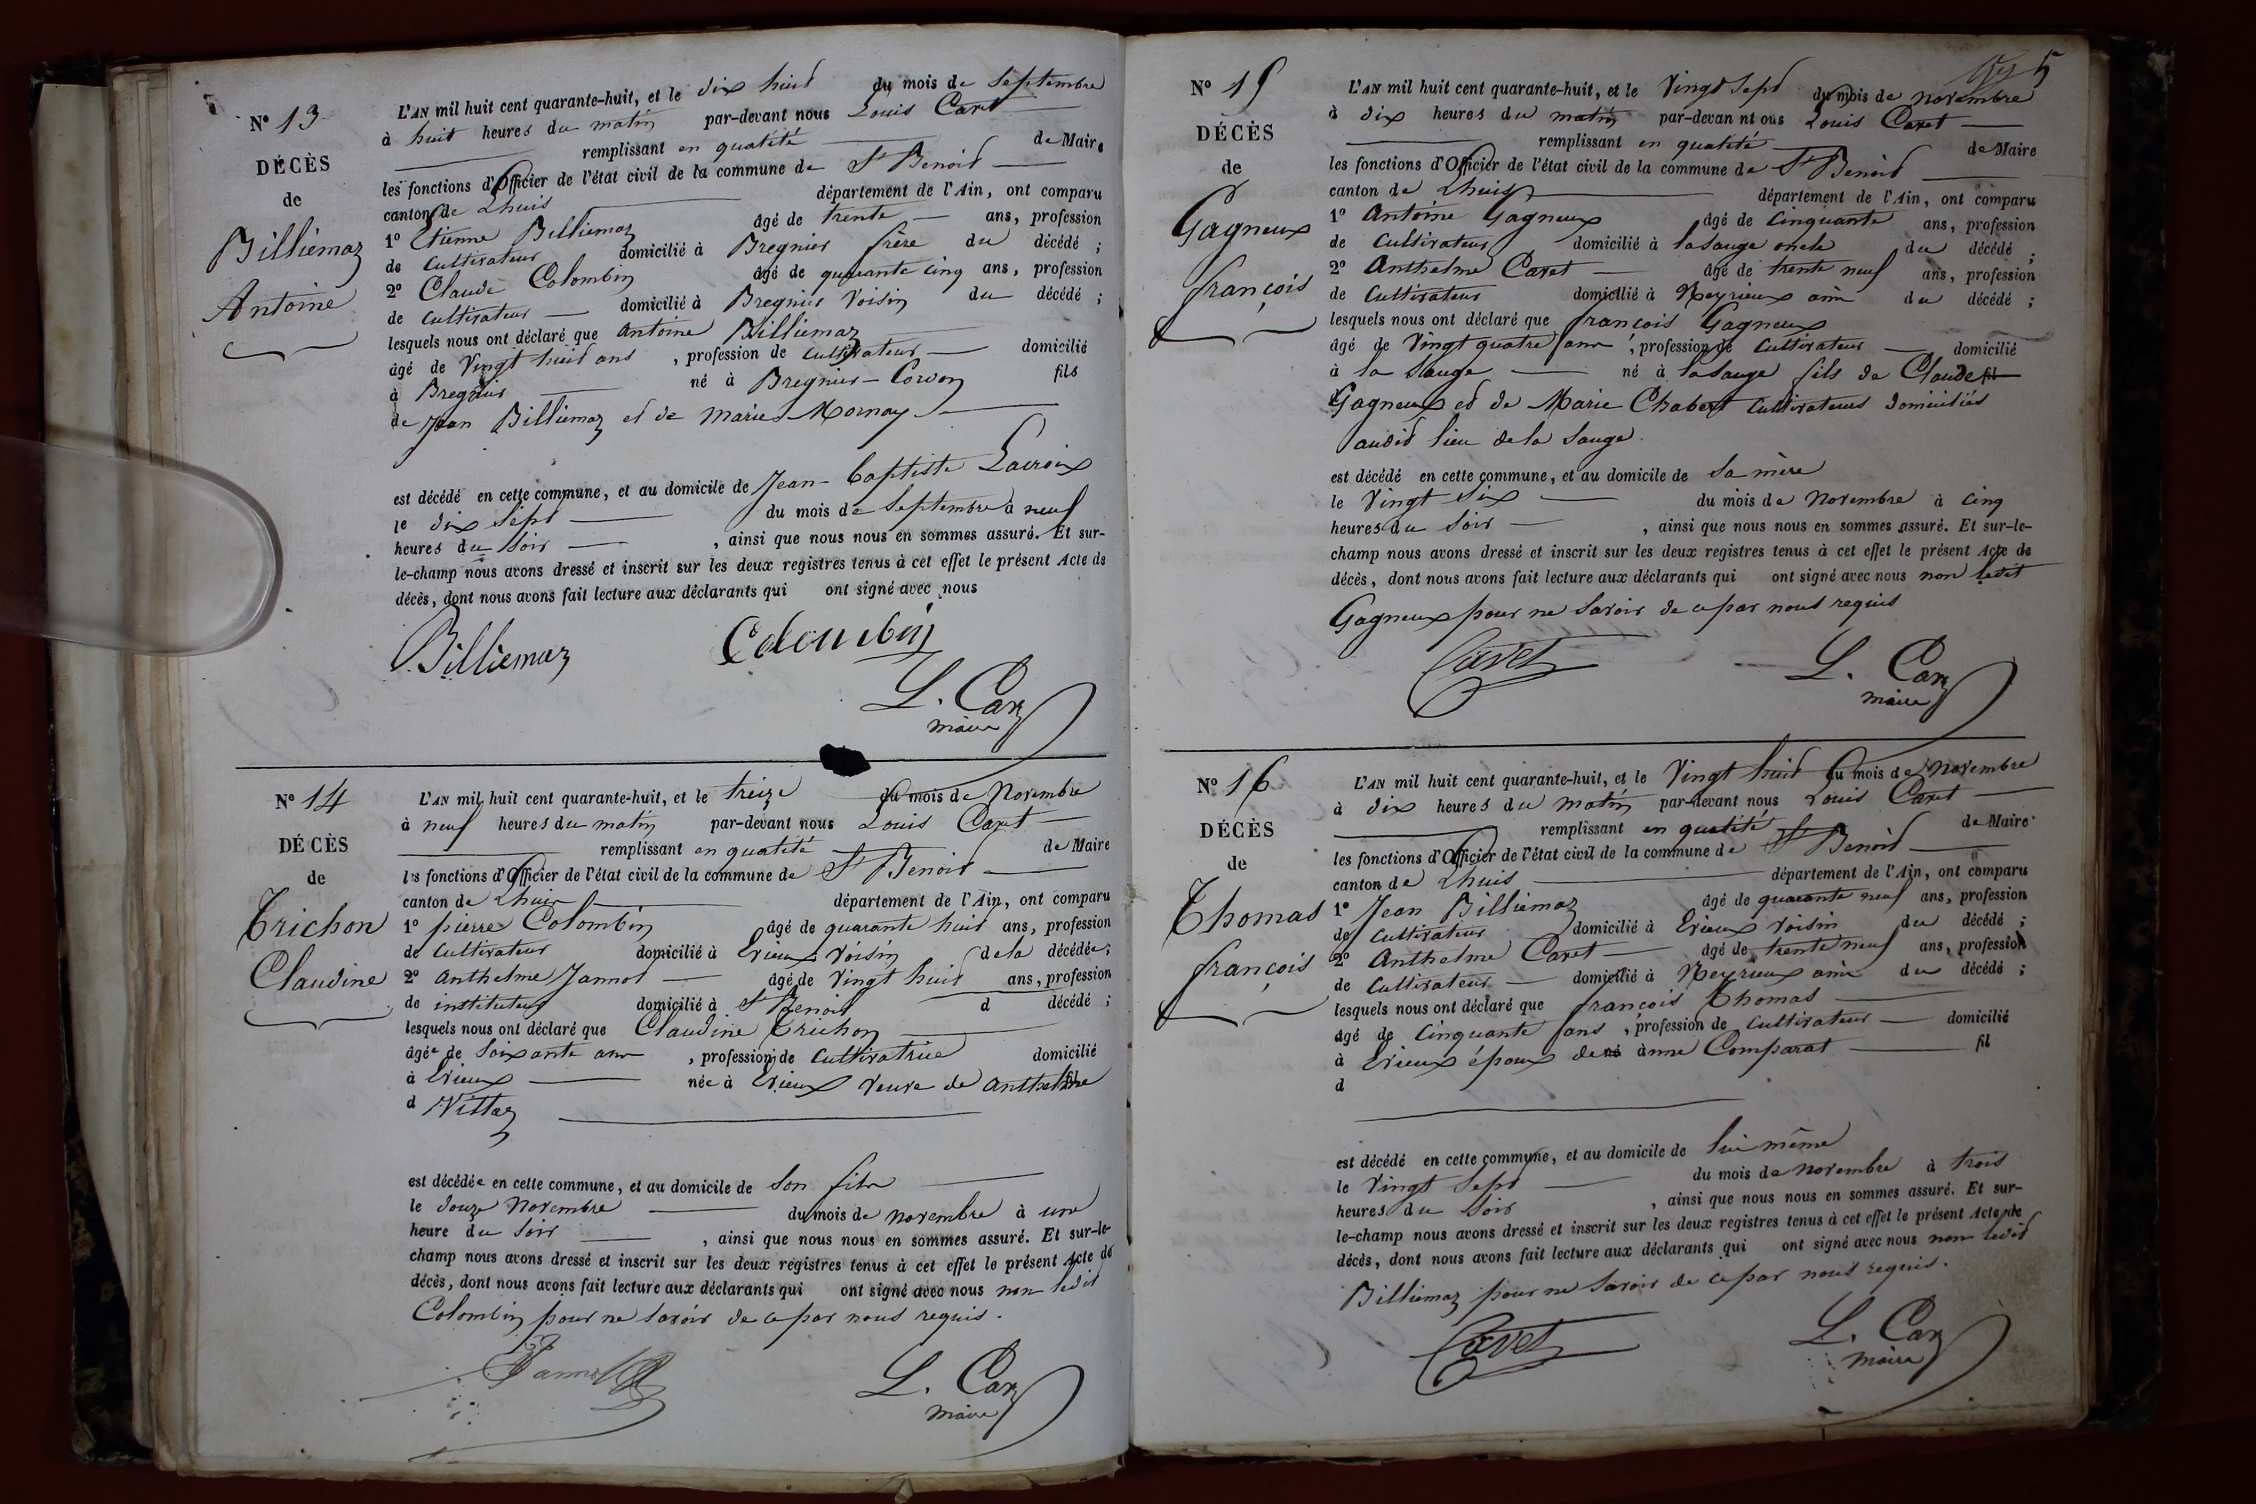 N° 13
DÉCÈS
de
Billiemaz
Antoine
L'AN mil huit cent quarante-huit, et le dix huit du mois de Septembre
à huit heures du matin par-devant nous Louis Caret
remplissant en qualité de Maire
les fonctions d'Officier de l'état civil de la commune de St Benoit
canton de Lhuis département de l'Ain, ont comparu
1° Etienne Billiemaz âgé de trente ans, profession
de cultivateur domicilié à Bregnier frère du décédé ;
2° Claude Colombin âgé de quarante cinq ans, profession
de cultivateur domicilié à Bregnier voisin du décédé ;
lesquels nous ont déclaré que Antoine Billiemaz
âgé de Vingt huit ans , profession de cultivateur domicilié
à Bregnier né à Bregnier-Cordon fils
de Jean Billiemaz et de Marie Mornay
est décédé en cette commune, et au domicile de Jean-Baptiste Lacroix
le dix sept du mois de Septembre à neuf
heures du Soir , ainsi que nous nous en sommes assuré. Et sur-
le-champ nous avons dressé et inscrit sur les deux registres tenus à cet effet le présent Acte de
décès, dont nous avons fait lecture aux déclarants qui ont signé avec nous
Billiemaz Colombin
L. Car
maire
N° 14
DÉCÈS
de
Trichon
Claudine
L'AN mil huit cent quarante-huit, et le treize du mois de Novembre
à neuf heures du matin par-devant nous Louis Caret
remplissant en qualité de Maire
les fonctions d'Officier de l'état civil de la commune de St Benoit
canton de Lhuis département de l'Ain, ont comparu
1° pierre Colombin âgé de quarante huit ans, profession
de cultivateur domicilié à Evieux voisin de la décédée ;
2° Anthelme Jannot âgé de Vingt huit ans, profession
de instituteur domicilié à St Benoit d décédé ;
lesquels nous ont déclaré que Claudine Trichon
âgée de Soixante ans , profession de cultivatrice domicilié
à Evieux née à Evieux veuve de Anthelme fil
d Vittaz
est décédée en cette commune, et au domicile de Son fils
le douze Novembre du mois de Novembre à une
heure du Soir , ainsi que nous nous en sommes assuré. Et sur-le-
champ nous avons dressé et inscrit sur les deux registres tenus à cet effet le présent Acte de
décès, dont nous avons fait lecture aux déclarants qui ont signé avec nous non ledit
Colombin pour ne Savoir de ce par nous requis.
Jannot
L. Car
maire
5
N° 15
DÉCÈS
de
Gagneux
françois
L'AN mil huit cent quarante-huit, et le Vingt Sept du mois de novembre
à dix heures du matin par-devan nt ous Louis Caret
remplissant en qualité de Maire
les fonctions d'Officier de l'état civil de la commune de St Benoit
canton de Lhuis département de l'Ain, ont comparu
1° Antoine Gagneux âgé de Cinquante ans, profession
de Cultivateur domicilié à la Sauge oncle du décédé ;
2° Anthelme Caret âgé de trente neuf ans, profession
de Cultivateur domicilié à Neyrieux ami du décédé ;
lesquels nous ont déclaré que françois Gagneux
âgé de Vingt quatre ans , profession de cultivateur domicilié
à la Sauge né à la Sauge fils de Claude fil
Gagneux et de Marie Chabert cultivateurs domiciliés
audit lieu de la Sauge
est décédé en cette commune, et au domicile de Sa mère
le Vingt Six du mois de Novembre à Cinq
heures du Soir , ainsi que nous nous en sommes assuré. Et sur-le-
champ nous avons dressé et inscrit sur les deux registres tenus à cet effet le présent Acte de
décès, dont nous avons fait lecture aux déclarants qui ont signé avec nous non ledit
Gagneux pour ne Savoir de ce par nous requis
Caret
L. Car
maire
N° 16
DÉCÈS
de
Thomas
françois
L'AN mil huit cent quarante-huit, et le Vingt huit du mois de Novembre
à dix heures du matin par-devant nous Louis Caret
remplissant en qualité de Maire
les fonctions d'Officier de l'état civil de la commune de St Benoit
canton de Lhuis département de l'Ain, ont comparu
1° Jean Billiemaz âgé de quarante neuf ans, profession
de cultivateur domicilié à Evieux voisin du décédé ;
2° Anthelme Caret âgé de trente neuf ans, profession
de Cultivateur domicilié à Neyrieux ami du décédé ;
lesquels nous ont déclaré que françois Thomas
âgé de Cinquante ans , profession de cultivateur domicilié
à Evieux époux de né anne Comparat fil
d
est décédé en cette commune, et au domicile de lui même
le Vingt Sept du mois de novembre à trois
heures du Soir , ainsi que nous nous en sommes assuré. Et sur-
le-champ nous avons dressé et inscrit sur les deux registres tenus à cet effet le présent Acte de
décès, dont nous avons fait lecture aux déclarants qui ont signé avec nous non ledit
Billiemaz pour ne Savoir de ce par nous requis.
Caret
L. Car
maire